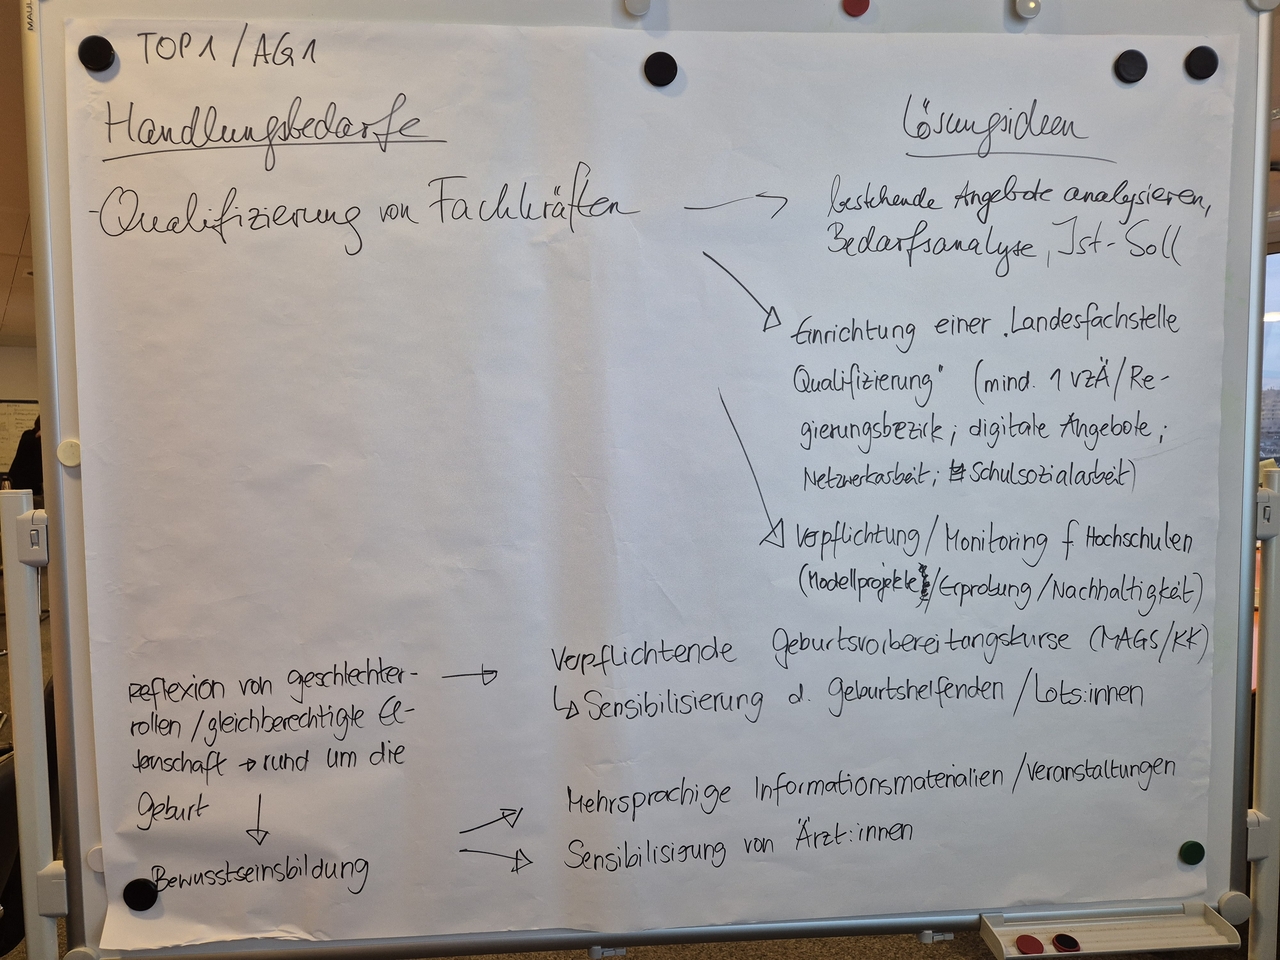 TOP 1 / AG 1
Handlungsbedarfe
Lösungsideen
- Qualifizierung von Fachkräften
bestehende Angebote analysieren,
Bedarfsanalyse, Ist-Soll
Einrichtung einer "Landesfachstelle
Qualifizierung" (mind. 1 VZÄ/Re-
gierungsbezirk; digitale Angebote;
Netzwerkarbeit; Schulsozialarbeit)
Verpflichtung / Monitoring f Hochschulen
(Modellprojekte /Erprobung/Nachhaltigkeit)
Reflexion von geschlechter-
rollen / gleichberechtigte El-
ternschaft → rund um die
Geburt
↓
Bewusstseinsbildung
→ Verpflichtende Geburtsvorbereitungskurse (MAGS/KK)
↳ Sensibilisierung d. Geburtshelfenden / Lots:innen
Mehrsprachige Informationsmaterialien / Veranstaltungen
Sensibilisierung von Ärzt:innen